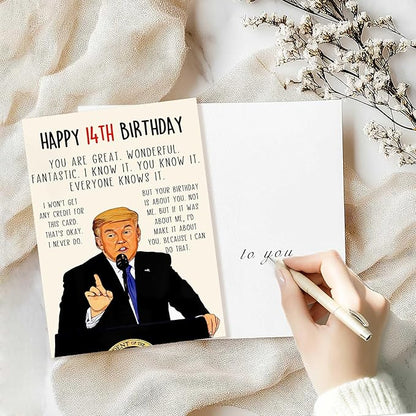 HAPPY 14TH BIRTHDAY
YOU ARE GREAT. WONDERFUL.
FANTASTIC. I KNOW IT. YOU KNOW IT.
EVERYONE KNOWS IT.
I WON'T GET
ANY CREDIT FOR
THIS CARD.
THAT'S OKAY.
I NEVER DO.
BUT YOUR BIRTHDAY
IS ABOUT YOU. NOT
ME. BUT IF IT WAS
ABOUT ME, I'D
MAKE IT ABOUT
YOU, BECAUSE I CAN
DO THAT.
to you